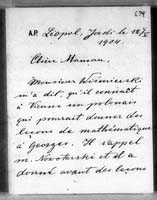 A.P. Léopol, Jeudi le 18/5
1904.
Chère Maman,
Monsieur Wiśnieviecki
m'a dit, qu'il connait à
Vienne un polonais
qui pourrait donner des
leçons de mathématique
à Georges. Il s'appel
m. Novoterski et il a
donné avant des leçons